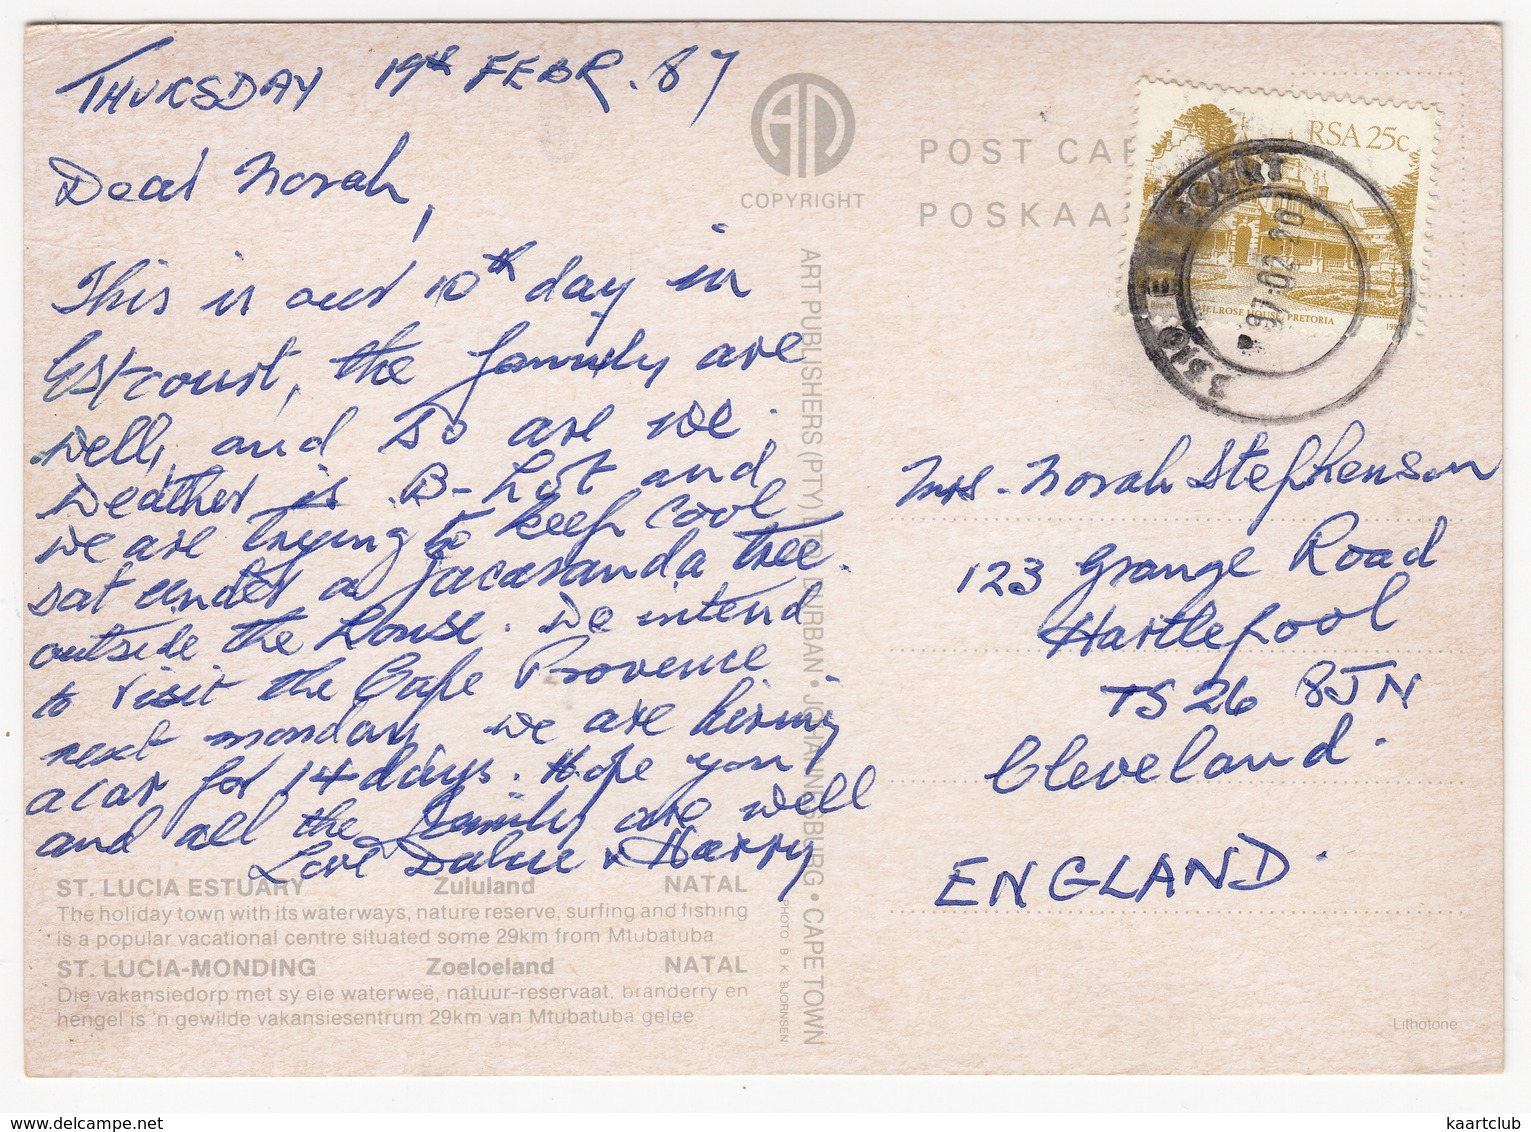 THURSDAY 19th FEBR. 87
Dear Norah,
This is our 10th day in
Estcourt, the family are
well, and so are we.
Weather is B-Hot and
we are trying to keep cool
sat under a Jacaranda tree.
outside the house. We intend
to visit the Cape Provence
next monday, we are hiring
a car for 14 days. Hope you
and all the family are well
Love & Harry
ST. LUCIA ESTUARY Zululand NATAL
The holiday town with its waterways, nature reserve, surfing and fishing
is a popular vacational centre situated some 29km from Mtubatuba
ST. LUCIA-MONDING Zoeloeland NATAL
Die vakansiedorp met sy eie waterweë, natuur-reservaat, branderry en
hengel is 'n gewilde vakansiesentrum 29km van Mtubatuba geleë
COPYRIGHT
ART PUBLISHERS (PTY) LTD. DURBAN • JOHANNESBURG • CAPE TOWN
PHOTO B K BJORNSEN
POST CAR
POSKAA
RSA 25c
MELROSE HOUSE, PRETORIA
Mrs. Norah Stephenson
123 Grange Road
Hartlepool
TS26 8JN
Cleveland.
ENGLAND.
Lithotone
www.delcampe.net
kaartclub